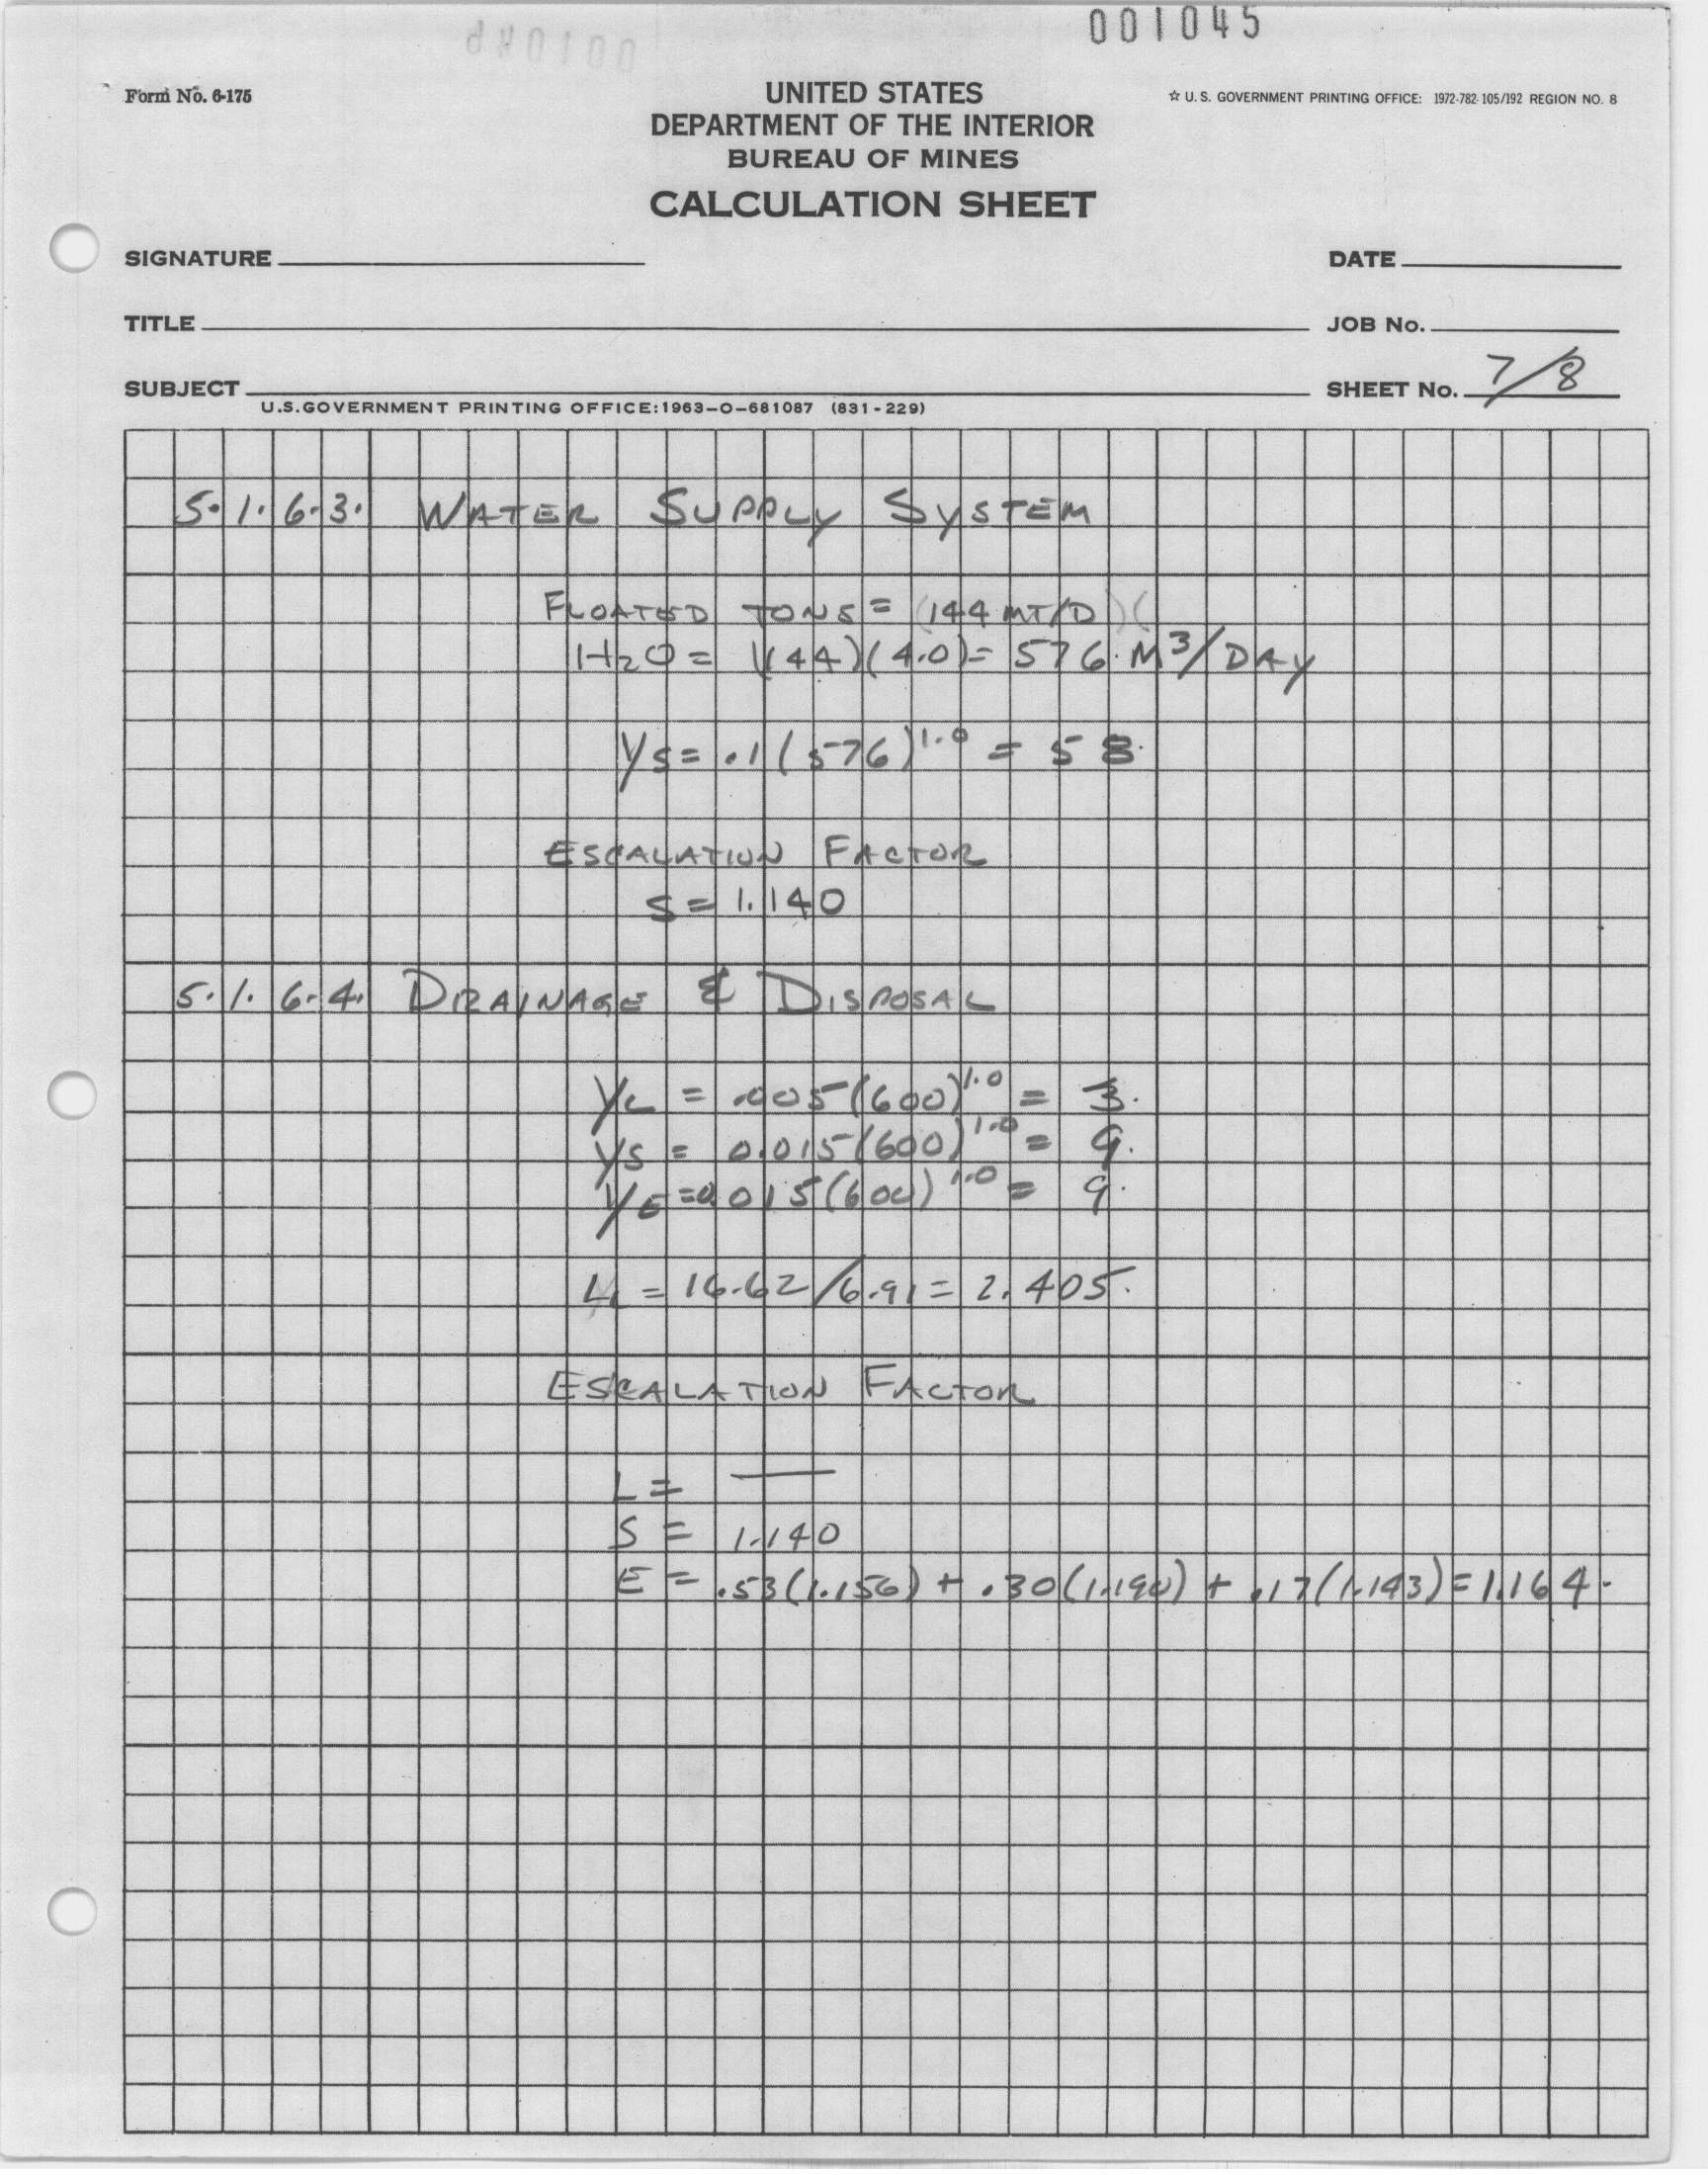 001045
Form No. 6-175
UNITED STATES
☆ U. S. GOVERNMENT PRINTING OFFICE: 1972-782-105/192 REGION NO. 8
DEPARTMENT OF THE INTERIOR
BUREAU OF MINES
CALCULATION SHEET
SIGNATURE DATE
TITLE JOB No.
SUBJECT SHEET No. 7/8
U.S. GOVERNMENT PRINTING OFFICE: 1963-O-681087 (831-229)
5.1.6.3. WATER SUPPLY SYSTEM
FLOATED TONS = (144 MT/D)(
H2O = (144)(4.0) = 576. M³/DAY
YS = .1(576)^1.0 = 58.
ESCALATION FACTOR
S = 1.140
5.1.6.4. DRAINAGE & DISPOSAL
YL = .005(600)^1.0 = 3.
YS = 0.015(600)^1.0 = 9.
YE = 0.015(600)^1.0 = 9.
L = 16.62/6.91 = 2.405.
ESCALATION FACTOR
L = —
S = 1.140
E = .53(1.156) + .30(1.190) + .17(1.143) = 1.164.